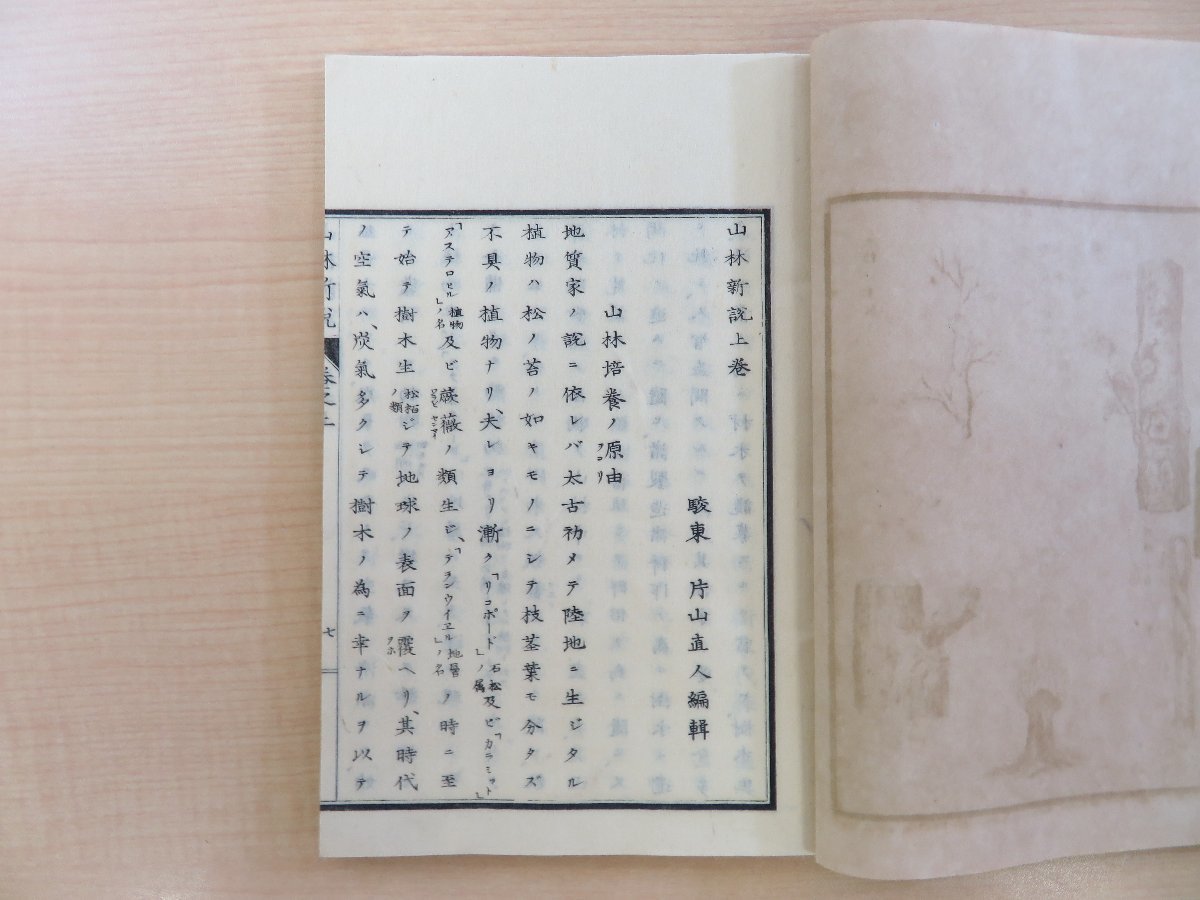 山林新説上巻
駿東 片山直人編輯
山林培養ノ原由
ヲコリ
地質家ノ説ニ依レバ太古初メテ陸地ニ生ジタル
植物ハ松ノ苔ノ如キモノニシテ技茎葉モ分タズ
不具ノ植物ナリ、夫レヨリ漸ク「リコポード」石松ノ属及ビ「カラミット」
「アステロヒル」植物ノ名及ビ蕨薇ノ類生ジ、「テランウイエル」地層ノ名ノ時ニ至
ワラビ ゼンマイ
テ始テ樹木生松栢ノ類ジテ地球ノ表面ヲ覆ヘリ、其時代
ヲホ
ノ空氣ハ、炭氣多クシテ樹木ノ為ニ幸ナルヲ以テ
山林新説 巻之上 七